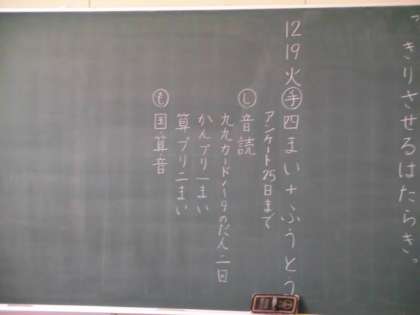 きりさせるはたらき。
12 19 火 ㊙手 四まい+ふうとう
アンケート25日まで
し 音読
九九カード1~9のだん二回
かんプリ一まい
算プリ二まい
も 国算音